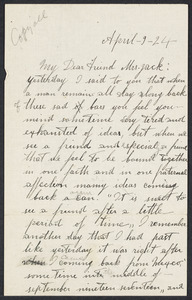 Copied
April-9-24
My Dear Friend Mrs. Jack:
Yesterday I said to you that when a
man remain all day along back
of those sad of bars you feel you-
mind sometime very tired and
exhausted of ideas, but when we
see a friend and especial a friend
that we feel to be bound together
in one faith and in one fraternal
affection many ideas coming
back a can! "It is sweet to
see a friend after a little
period of time," I remember
another day that I had past
like yesterday it was right after
I coming back from Mexico,
some time into middle of
september nineteen seventeen, and